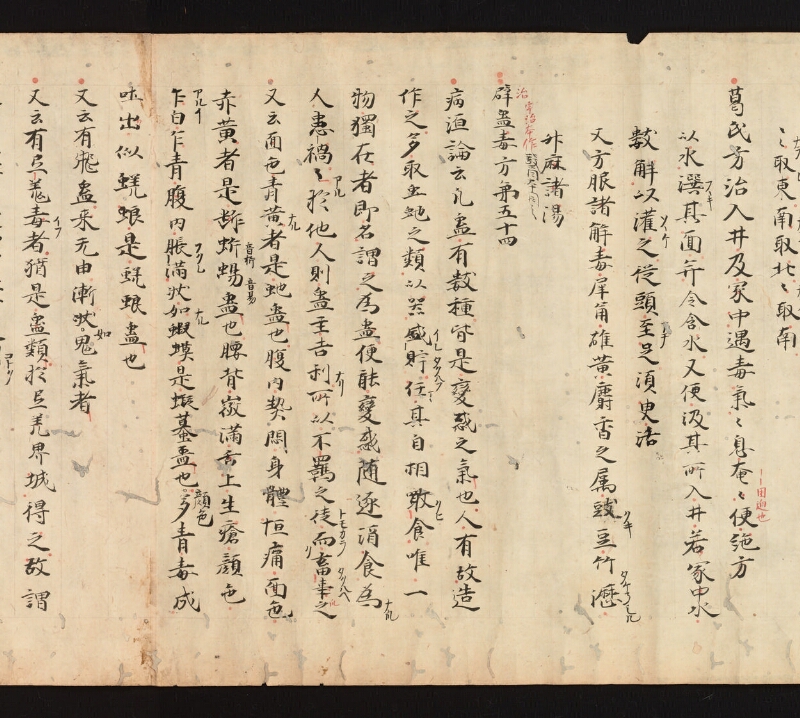 取東〻南取北〻取南
葛氏方治入井及冢中遇毒氣〻息奄〻便絶方
以水潠其面并令含水又便汲其所入井若冢中水
數解以灌之從頭至足須臾活
又方服諸解毒犀角雄黄麝香之属豉豆竹瀝
升麻諸湯
辟蠱毒方第五十四
病源論云凡蠱有數種皆是變惑之氣也人有故造
作之多取虫虵之類以器盛貯任其自相噉食唯一
物獨在者即名謂之為蠱便能變惑随逐酒食為
人患禍〻於他人則蠱主吉利所以不羈之徒而畜事之
又云面色青黄者是虵蠱也腹内熱悶身體恒痛面色
赤黄者是蜥蜴蠱也腰背微滿舌上生瘡顔色
乍白乍青腹内脹滿状如蝦蟇是蝦蟇蠱也顔色多青毒成
吐出似蜣蜋是蜣蜋蠱也
又云有飛蠱来无由漸状如鬼氣者
又云有氐羌毒者猶是蠱類於氐羌界域得之故謂